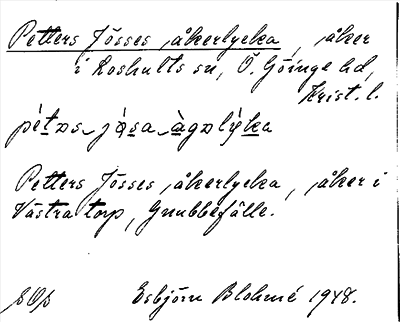 Petters Jösses åkerlycka, åker
i Loshults sn, Ö. Göinge hd,
Krist. l.
Petters Jösses åkerlycka, åker i
Västra torp, Gnubbefälle.
Esbjörn Blohmé 1948.